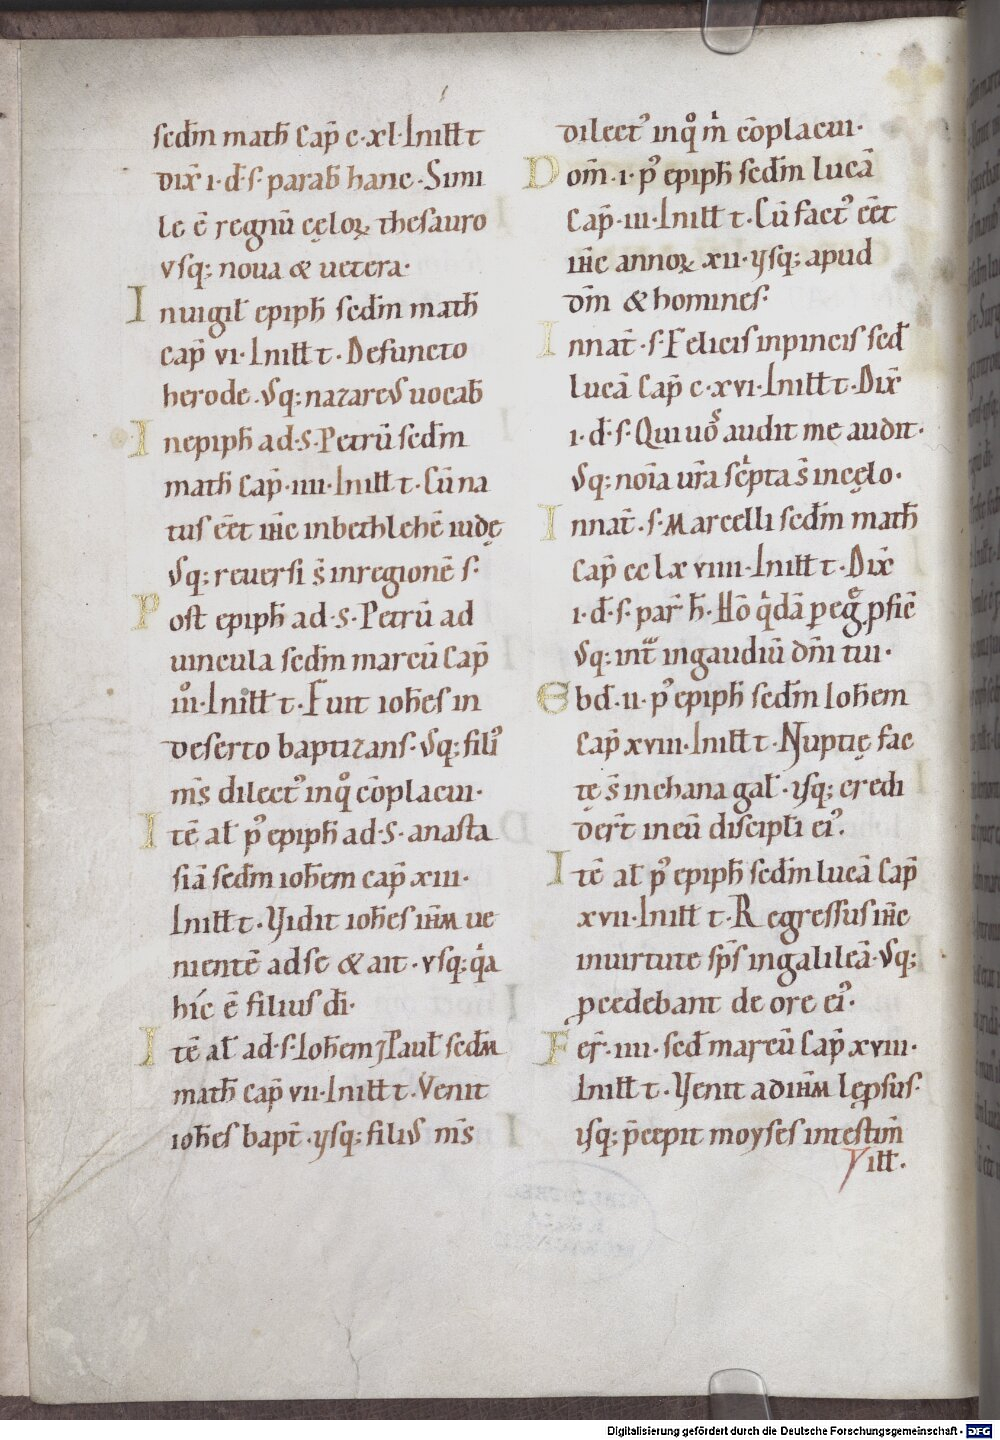 secdm math cap c·xl·Initt t
dix̄ i·d·s·parab hanc·Simi
le ē regnū cęloꝝ thesauro
vsq; noua & uetera·
Inuigil epiph secdm math
cap vi·Initt t·Defuncto
herode·Vsq; nazareus uocab
Inepiph ad·S·Petrū secdm
math cap·iiii·Initt t·Cū na
tus eēt ihc inbethlehē iudę
Vsq; reuersi s̄ inregionē s·
Post epiph ad·S·Petrū ad
uincula secdm marcū cap
iii·Initt t·Fuit iohes in
deserto baptizans·Vsq; fili᾽
m̄s dilect᾽ inq̊ cōplacui·
Itē al p᾽ epiph ad·S·anasta
siā secdm iohem cap xiii·
Initt t·Vidit iohes ihm ue
nientē adse & ait·vsq; qa
hic ē filius dī·
Itē al ad·S·Iohem ⁊ Paul secdm
math cap vii·Initt t·Venit
iohes bapt̄·vsq; filius m̄s
dilect᾽ inq̊ m cōplacui·
Dom̄·i·p᾽ epiph secdm lucā
Cap·iii·Initt t·Cū fact᾽ eēt
ihc annoꝝ xii·vsq; apud
dm̄ & homines·
Innat̄·s·Felicis inpincis secd
lucā Cap c·xvi·Initt t·Dix̄
i·d·s·Qui uos audit me audit·
Vsq; noīa ur̄a scpta s̄ incęlo·
Innat̄·s·Marcelli secdm math
Cap cc lx viiii·Initt t·Dix̄
i·d·s·par h̄·Hō qdā pegr pfic̄
Vsq; int ingaudiū dm̄i tui·
Ebd·ii·p᾽ epiph secdm Iohem
Cap xviii·Initt t·Nuptię fac
tę s̄ inchana gal·vsq; credi
der̄t ineū discipli ei᾽·
Itē al p᾽ epiph secdm lucā Cap
xvii·Initt t·Regressus ihc
inuirtute sps̄ ingalileā·Vsq;
pcedebant de ore ei᾽·
Fer̄·iiii·secd marcū Cap xviii·
Initt t·Venit adihm lepsus·
vsq; p̄cepit moyses intestim̄
Vitt·
Digitalisierung gefördert durch die Deutsche Forschungsgemeinschaft - DFG